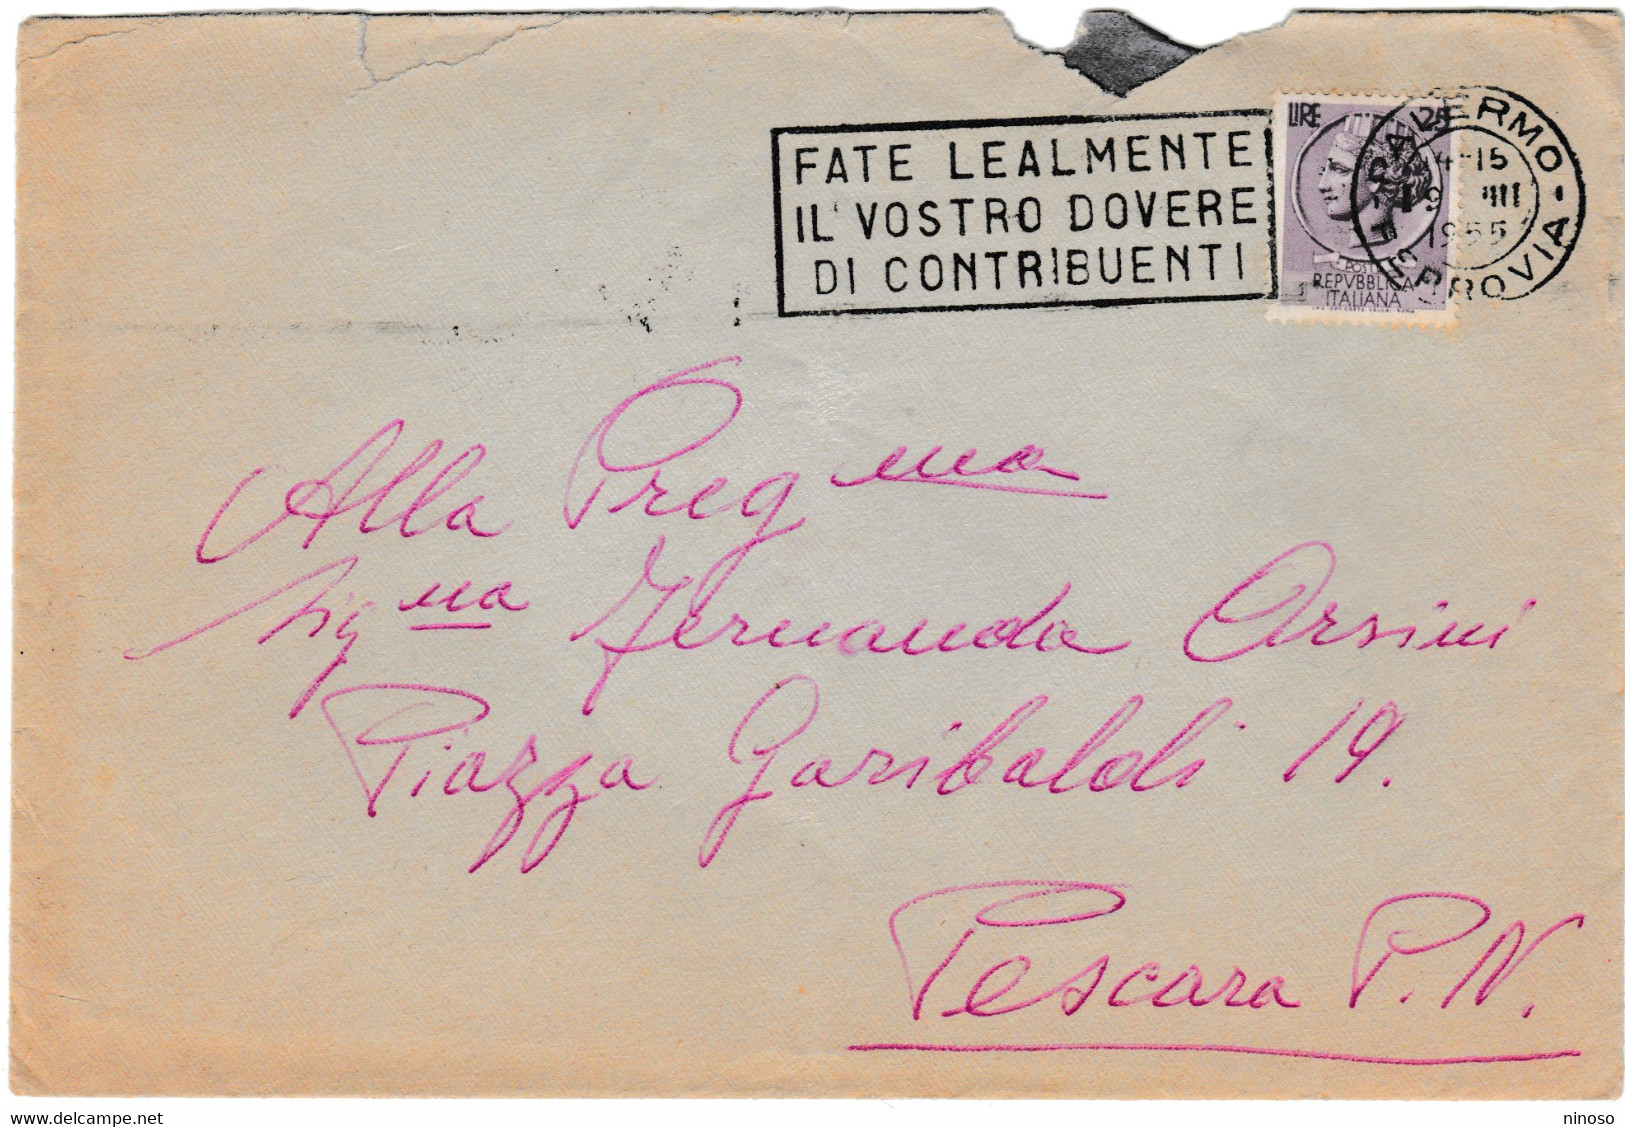 FATE LEALMENTE
IL VOSTRO DOVERE
DI CONTRIBUENTI
LIRE 25
POSTE
REPVBBLICA
ITALIANA
PALERMO
14-15
1955
Alla Pregma
Signa Fernanda Orsini
Piazza Garibaldi 19.
Pescara P.N.
www.delcampe.net
ninoso